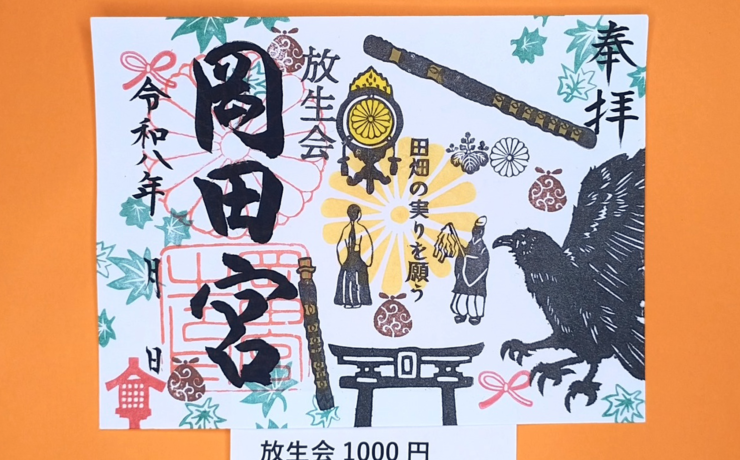 奉拝
放生会
田畑の実りを願う
岡田宮
令和八年
月
日
放生会 1000 円